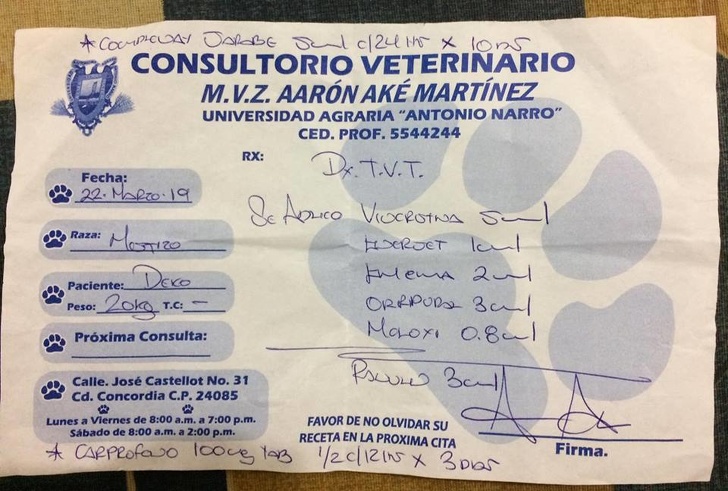 * Jarabe 5ml c/24 hrs x 10 días
CONSULTORIO VETERINARIO
M.V.Z. AARÓN AKÉ MARTÍNEZ
UNIVERSIDAD AGRARIA "ANTONIO NARRO"
CED. PROF. 5544244
RX:
Dx. T.V.T.
Fecha:
22-Marzo-19
Se Aplico Vincristina 5ml
Raza: Mestizo
1ml
2ml
Paciente: Deko
Peso: 20kg T.C: -
3ml
Meloxi 0.8ml
Próxima Consulta:
3ml
Calle. José Castellot No. 31
Cd. Concordia C.P. 24085
Lunes a Viernes de 8:00 a.m. a 7:00 p.m.
Sábado de 8:00 a.m. a 2:00 p.m.
FAVOR DE NO OLVIDAR SU
RECETA EN LA PROXIMA CITA
Firma.
* Carprofeno 100mg tab 1/2 c/12 hrs x 3 Dias